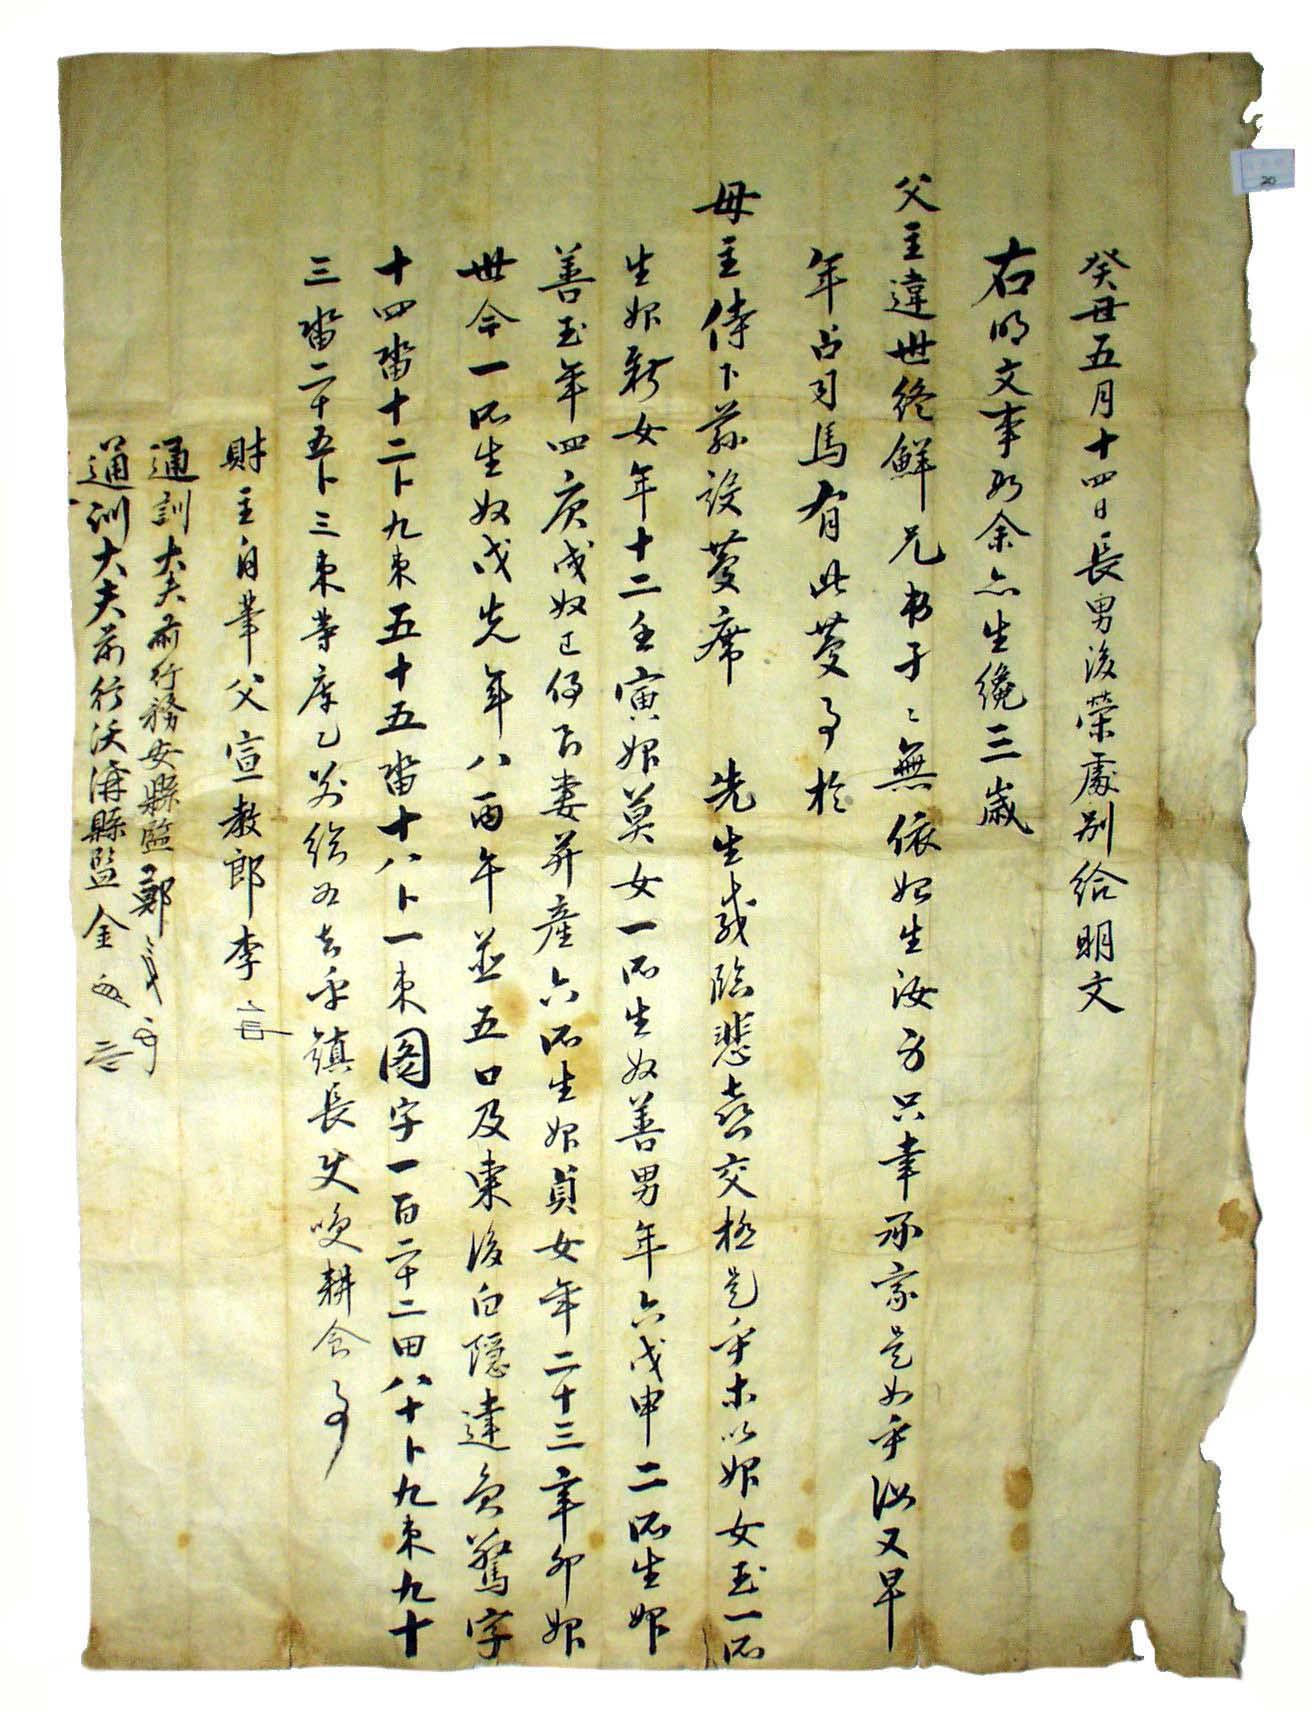 癸丑五月十四日長男後榮處別給明文
右明文事段余亦生纔三歲
父主違世終鮮兄弟孑〻無依始生汝身只幸承家是如乎汝又早
年占司馬有此慶事於
母主侍下蒜設慶席 先生感臨悲喜交極是乎等以婢女玉一所
生婢新女年十二壬寅婢莫女一所生奴善男年六戊申二所生婢
善玉年四庚戌奴正 良妻幷産六所生婢貞女年二十三辛卯婢
世今一所生奴戊先年八丙午並五口及東後白隱達員驚字
十四畓十二卜九束五十五畓十八卜一束圖字一百二十二田八十卜九束九十
三畓二十五卜三束等庫乙別給爲去乎鎮長使喚耕食事
財主自筆父宣敎郞李
通訓大夫前行務安縣監鄭
通訓大夫前行沃溝縣監金
20